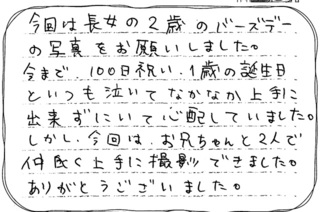 今回は長女の2歳のバースデー
の写真をお願いしました。
今まで、100日祝い、1歳の誕生日
といつも泣いてなかなか上手に
出来ずにいて心配していました。
しかし、今回は、お兄ちゃんと2人で
仲良く上手に撮影できました。
ありがとうございました。